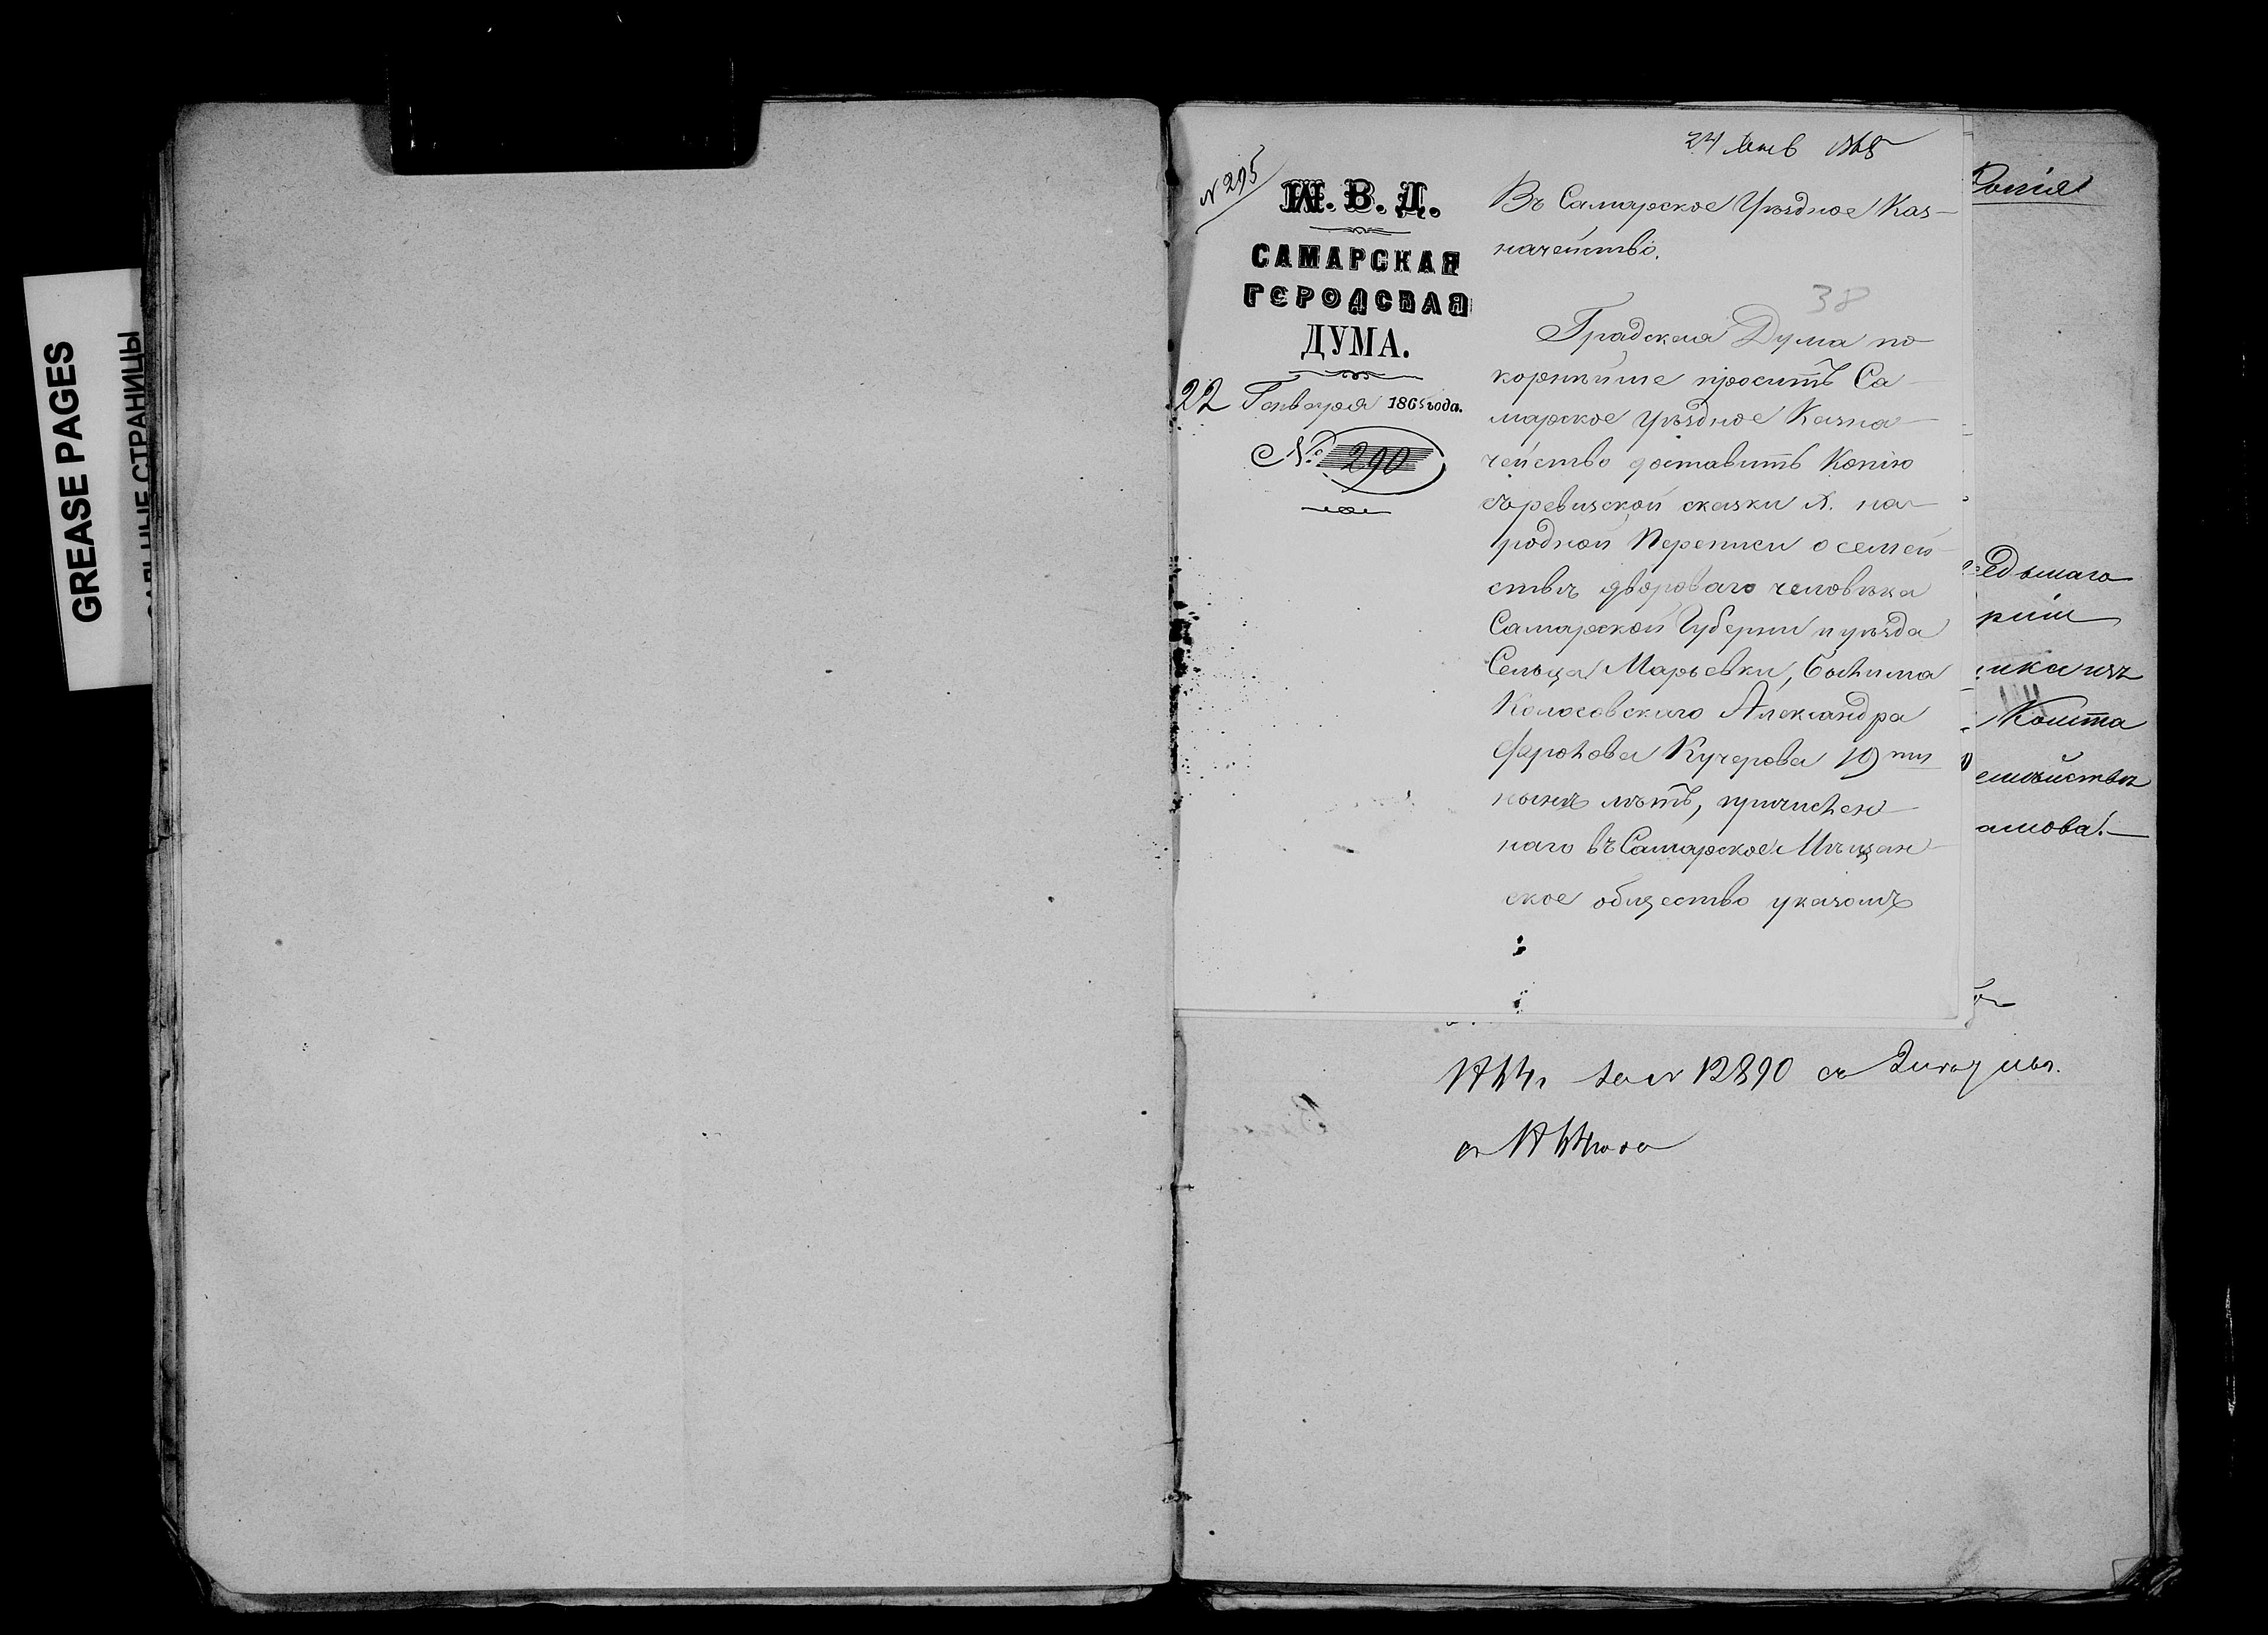 GREASE PAGES
САЛЬНЫЕ СТРАНИЦЫ
24 Янв 1865
№ 295
М. В. Д.
САМАРСКАЯ
ГОРОДСКАЯ
ДУМА.
22 Генваря 1865 года.
№ 290
Въ Самарское Уѣздное Каз-
начейство.
38
Градская Дума по
корнѣйше проситъ Са
марское Уѣздное Казна-
чейство доставить Копію
съ ревизской сказки X. на-
родной Переписи о семей
ствѣ двороваго человѣка
Самарской Губерніи и уѣзда
Сельца Марьевки,
Колосовскаго Александра
Фролова Кучерова 19ти
нынѣ лѣтъ, причислен
наго въ Самарское Мѣщан
ское общество указомъ
Копія
едьмаго
ріи
ика изъ
Комта
емѣйствѣ
амова.
12890